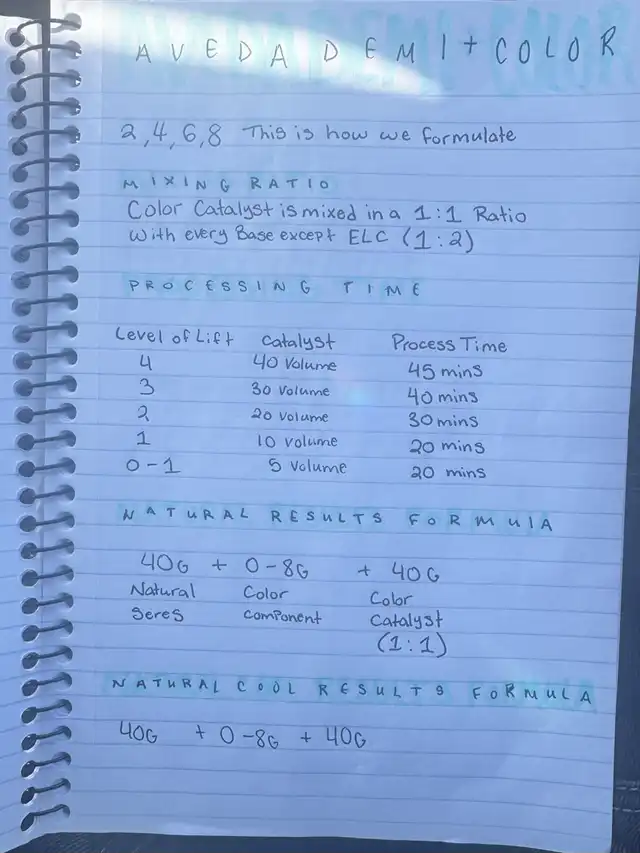 AVEDA DEMI + COLOR
2,4,6,8 This is how we formulate
MIXING RATIO
Color Catalyst is mixed in a 1:1 Ratio
with every Base except ELC (1:2)
PROCESSING TIME
Level of Lift Catalyst Process Time
4 40 Volume 45 mins
3 30 Volume 40 mins
2 20 Volume 30 mins
1 10 Volume 20 mins
0-1 5 Volume 20 mins
NATURAL RESULTS FORMULA
40G + 0-8G + 40G
Natural Color Color
Seres Component Catalyst
(1:1)
NATURAL COOL RESULTS FORMULA
40G + 0-8G + 40G